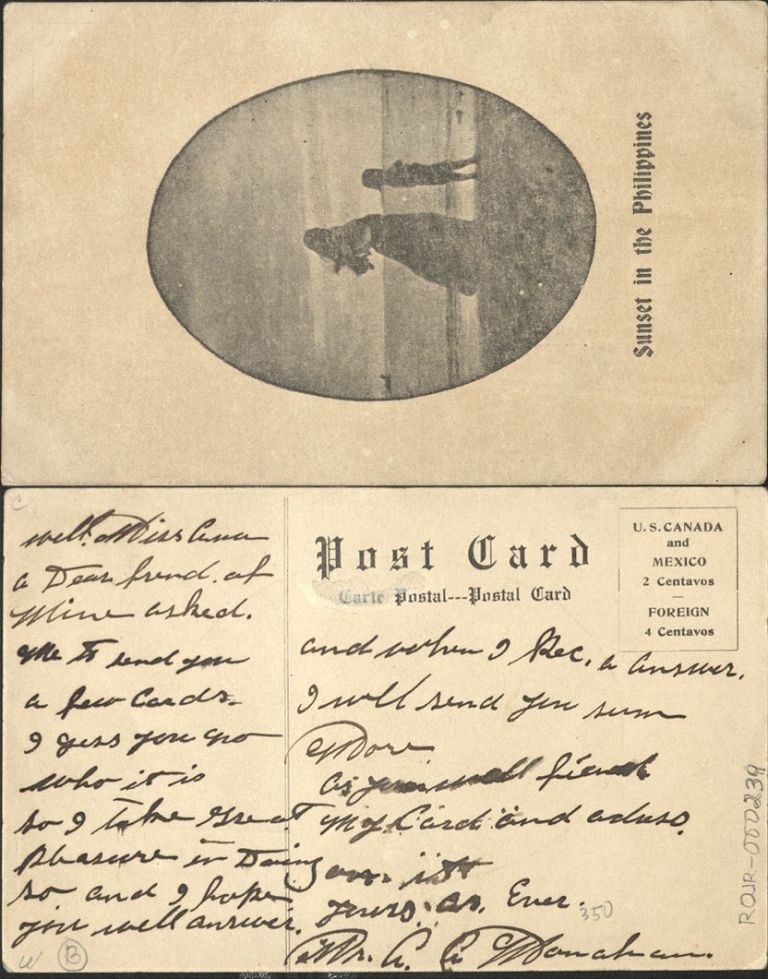 Sunset in the Philippines
Post Card
Carte Postal---Postal Card
U.S. CANADA
and
MEXICO
2 Centavos
FOREIGN
4 Centavos
well. Miss Anna
a Dear frend. of
Mine asked.
Me to send you
a few Cards.
I gess you no
who it is
so I take Great
Pleasure in Doing
so and I hope
you well answer.
and when I Rec. a answer.
I well send you sum
More
as you well find
My Card and adress.
on it
yours. as. Ever.
Mr. A. A Monahan.
350
W B
C
ROJR-000239